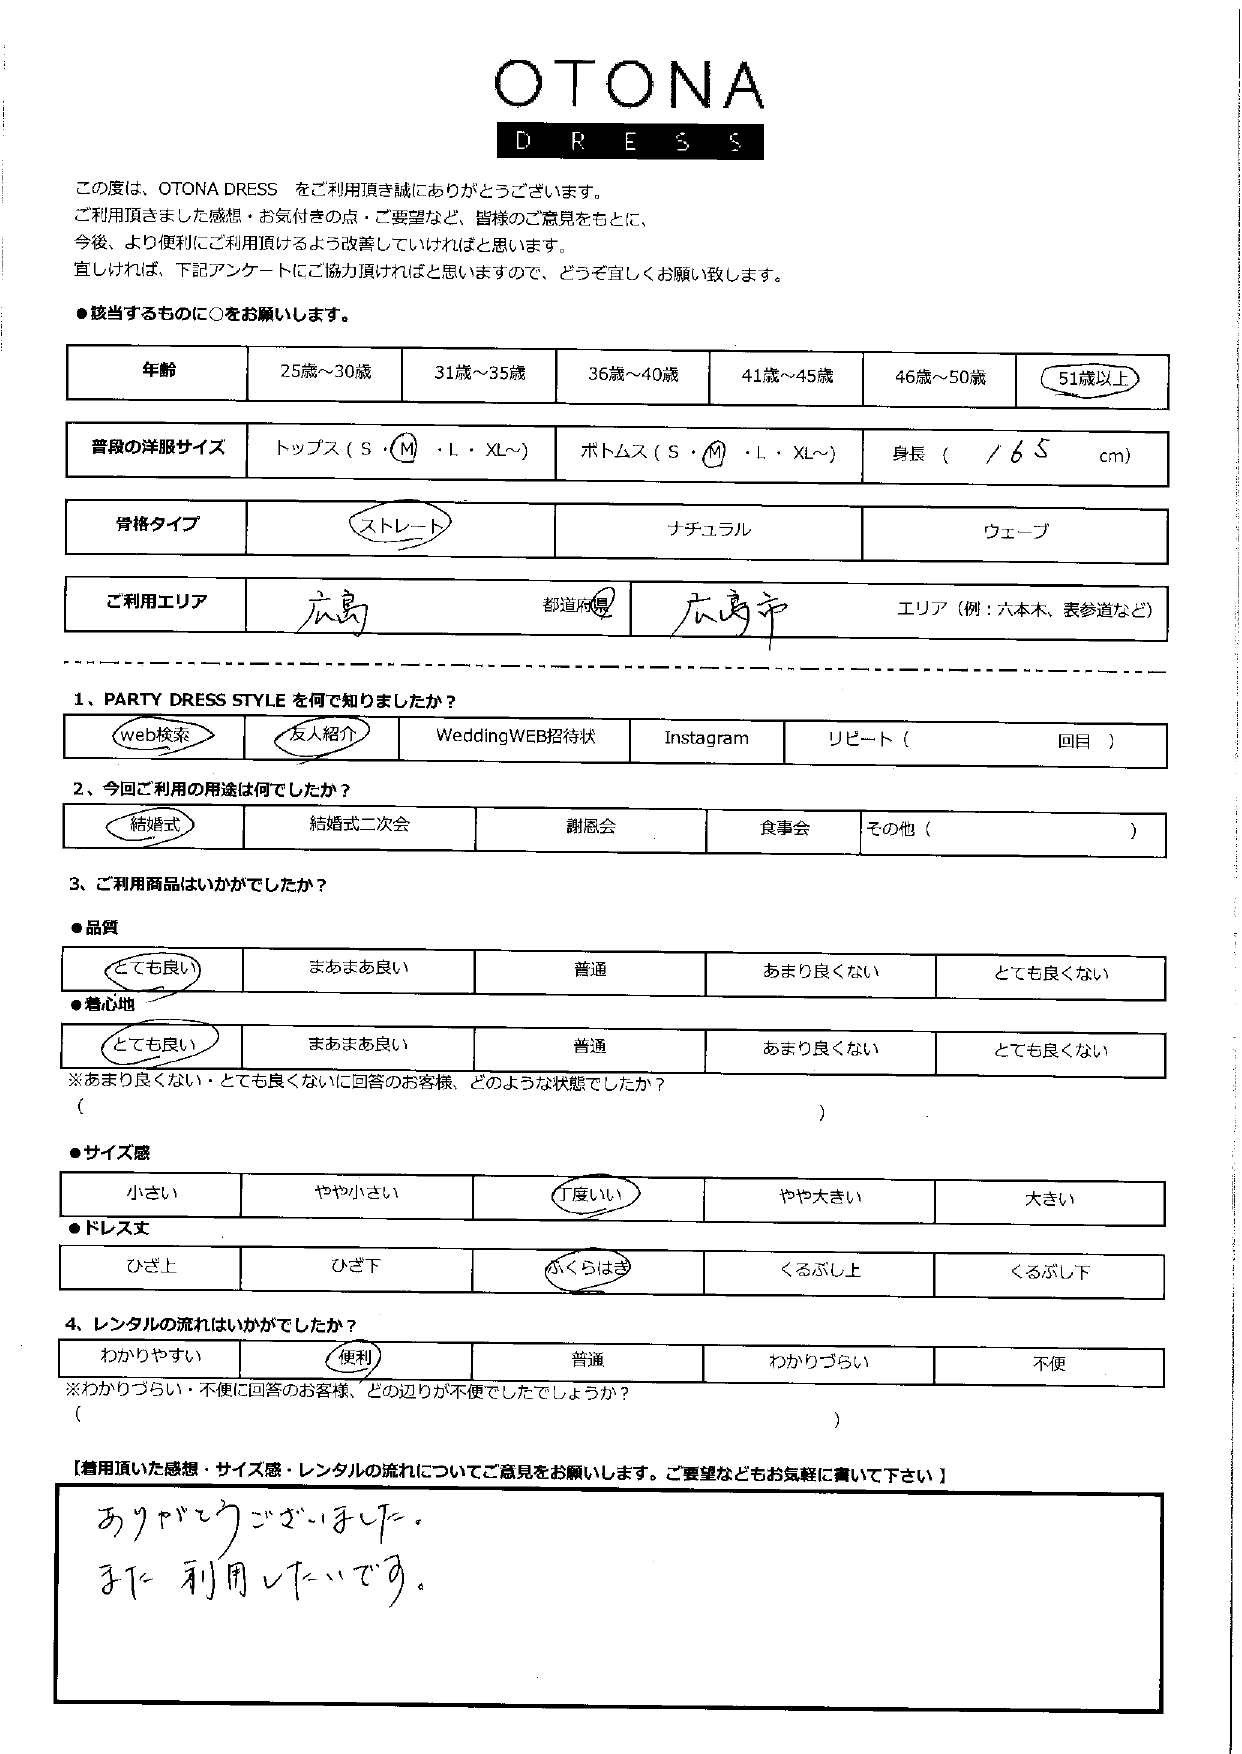 OTONA
DRESS
この度は、OTONA DRESS　をご利用頂き誠にありがとうございます。
ご利用頂きました感想・お気付きの点・ご要望など、皆様のご意見をもとに、
今後、より便利にご利用頂けるよう改善していければと思います。
宜しければ、下記アンケートにご協力頂ければと思いますので、どうぞ宜しくお願い致します。
●該当するものに○をお願いします。
年齢 25歳～30歳 31歳～35歳 36歳～40歳 41歳～45歳 46歳～50歳 51歳以上
普段の洋服サイズ トップス ( S ・M ・L ・ XL～) ボトムス ( S ・M ・L ・ XL～) 身長 ( 165 cm)
骨格タイプ ストレート ナチュラル ウェーブ
ご利用エリア 広島 都道府県 広島市 エリア（例：六本木、表参道など）
1、PARTY DRESS STYLE を何で知りましたか？
web検索 友人紹介 WeddingWEB招待状 Instagram リピート ( 回目 )
2、今回ご利用の用途は何でしたか？
結婚式 結婚式二次会 謝恩会 食事会 その他 ( )
3、ご利用商品はいかがでしたか？
●品質
とても良い まあまあ良い 普通 あまり良くない とても良くない
●着心地
とても良い まあまあ良い 普通 あまり良くない とても良くない
※あまり良くない・とても良くないに回答のお客様、どのような状態でしたか？
( )
●サイズ感
小さい やや小さい 丁度いい やや大きい 大きい
●ドレス丈
ひざ上 ひざ下 ふくらはぎ くるぶし上 くるぶし下
4、レンタルの流れはいかがでしたか？
わかりやすい 便利 普通 わかりづらい 不便
※わかりづらい・不便に回答のお客様、どの辺りが不便でしたでしょうか？
( )
【着用頂いた感想・サイズ感・レンタルの流れについてご意見をお願いします。ご要望などもお気軽に書いて下さい 】
ありがとうございました。
また 利用したいです。